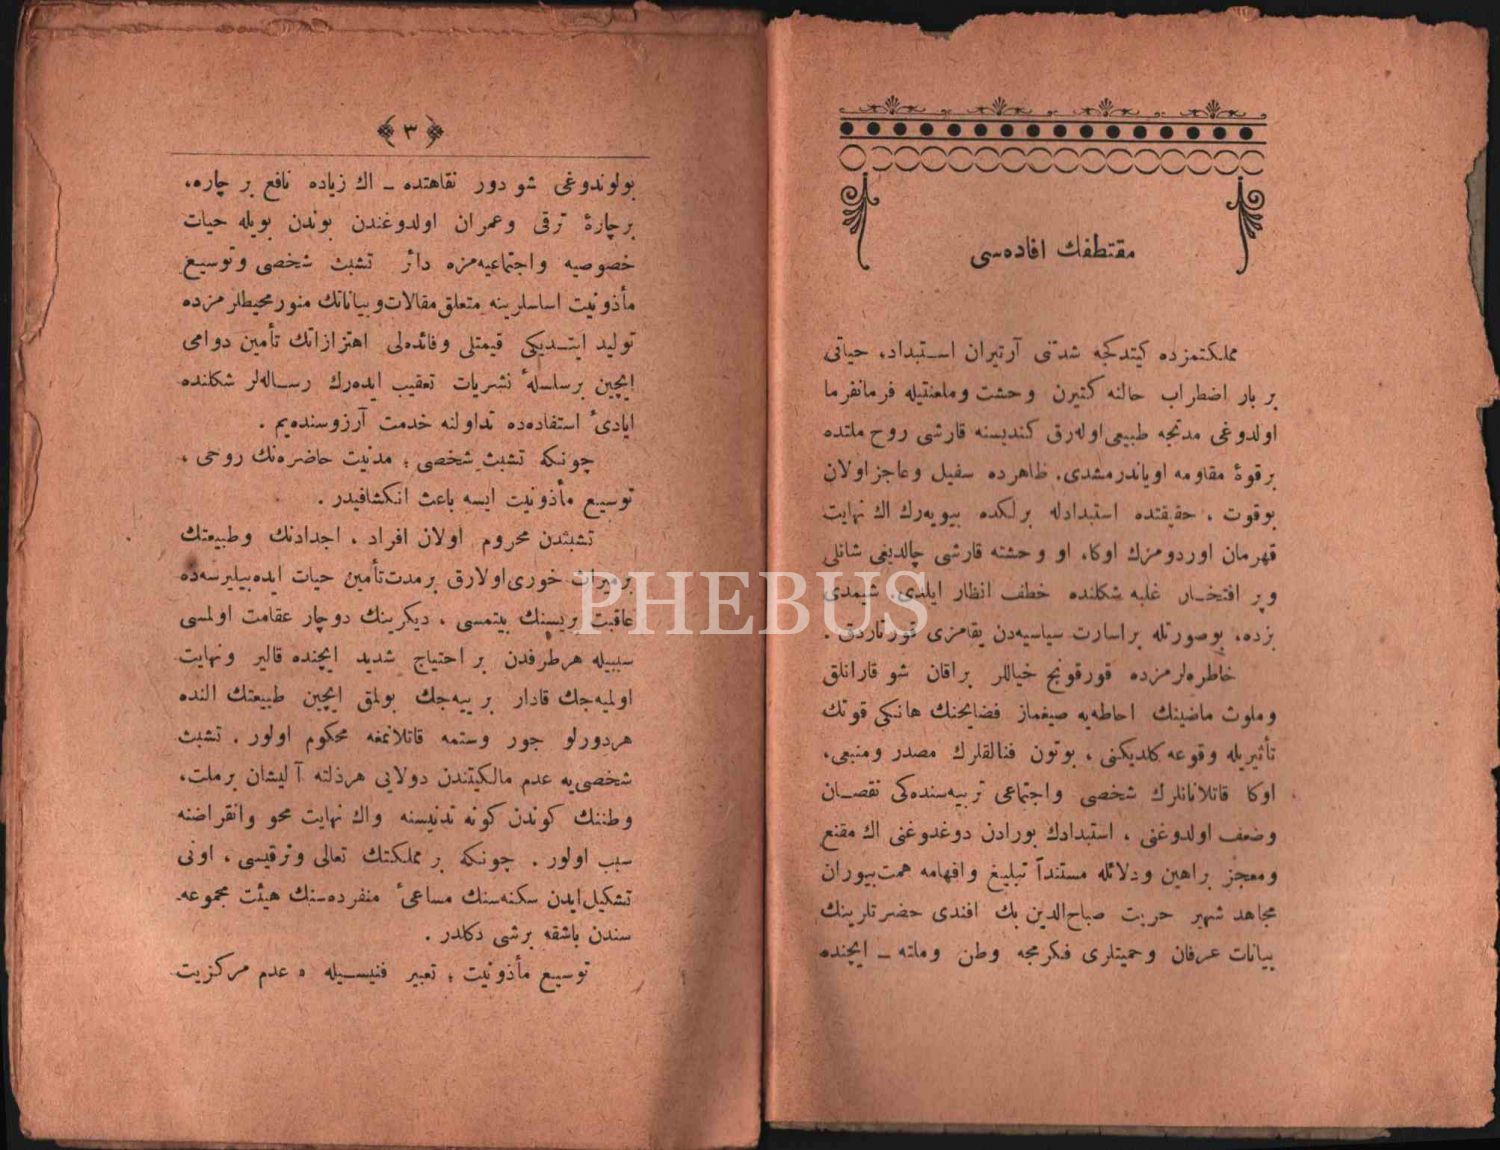 مقتطفك افاده‌سى
مملكتمزده كيتدكجه شدتنى آرتيران استبداد، حياتى
بر بار اضطراب حالنه كتيرن وحشت وملعنتيله فرمانفرما
اولدوغى مدتجه طبيعى اوله‌رق كنديسنه قارشى روح ملتده
بر قوۀ مقاومه اوياندرمشدى. ظاهرده سفيل وعاجز اولان
بوقوت ، حقيقتده استبدادله برلكده بيويه‌رك اك نهايت
قهرمان اوردومزك اوكا، او وحشته قارشى چالديغى شانلى
وپر افتخار غلبه شكلنده خطف انظار ايلدى. شيمدى
بزده، بوصورتله براسارت سياسيه‌دن يقامزى قورتاردق .
خاطره‌لرمزده قورقونج خياللر براقان شو قارانلق
وملوث ماضينك احاطه‌يه صيغماز فضايحنك هانكى قوتك
تأثيريله وقوعه كلديكنى ، بوتون فنالقلرك مصدر ومنبعى،
اوكا قاتلانانلرك شخصى واجتماعى تربيه‌سنده‌كى نقصان
وضعف اولدوغنى ، استبدادك بورادن دوغدوغنى اك مقنع
ومعجز براهين ودلائله مستنداً تبليغ وافهامه همت‌بيوران
مجاهد شهير حريت صباح‌الدين بك افندى حضرتلرينك
بيانات عرفان وحميتلرى فكرمجه وطن وملته ــ ايچنده
٣
بولوندوغى شو دور نقاهتده ــ اك زياده نافع بر چاره،
برچارۀ ترقى وعمران اولدوغندن بوندن بويله حيات
خصوصيه واجتماعيه‌مزه دائر تشبث شخصى وتوسيع
مأذونيت اساسلرينه متعلق مقالات‌وبياناتك منورمحيطلرمزده
توليد ايتديكى قيمتلى وفائده‌لى اهتزازاتك تأمين دوامى
ايچين برسلسلۀ نشريات تعقيب ايده‌رك رساله‌لر شكلنده
ايادئ استفاده‌ده تداولنه خدمت آرزوسنده‌يم .
چونكه تشبث شخصى ؛ مدنيت حاضره‌نك روحى ،
توسيع مأذونيت ايسه باعث انكشافيدر .
تشبثدن محروم اولان افراد ، اجدادنك وطبيعتك
برميراث خورى‌اولارق برمدت‌تأمين حيات ايده‌بيليرسه‌ده
عاقبت بريسنك بيتمسى ، ديكرينك دوچار عقامت اولمسى
سببيله هرطرفدن بر احتياج شديد ايچنده قالير ونهايت
اولميه‌جك قادار بر ييه‌جك بولمق ايچين طبيعتك النده
هردورلو جور وستمه قاتلانمغه محكوم اولور . تشبث
شخصى‌يه عدم مالكيتندن دولايى هرذلته آليشان برملت،
وطننك كوندن كونه تدنيسنه واك نهايت محو وانقراضنه
سبب اولور . چونكه بر مملكتك تعالى وترقيسى ، اونى
تشكيل‌ايدن سكنه‌سنك مساعئ منفرده‌سنك هيئت مجموعه‌
سندن باشقه برشى دكلدر .
توسيع مأذونيت ؛ تعبير فنيسيله « عدم مركزيت
PHEBUS